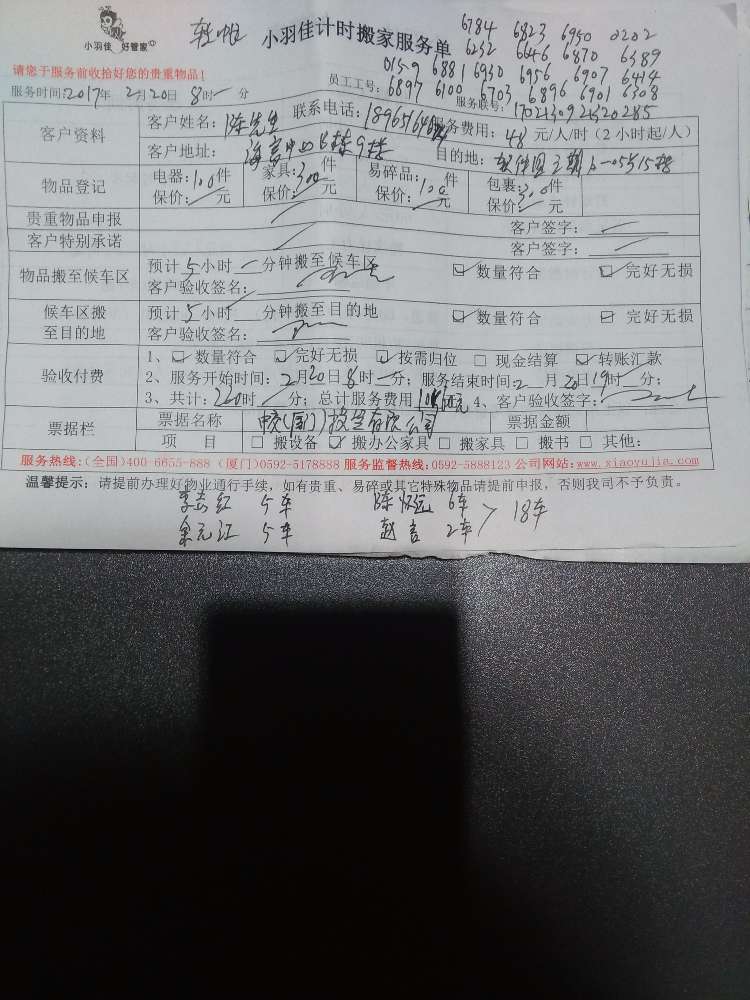 小羽佳 好管家
小羽佳计时搬家服务单
6784 6823 6950 0202
6232 6646 6870 6389
请您于服务前收拾好您的贵重物品!
0159 6881 6930 6956 6907 6414
员工工号: 6897 6100 6703 6896 6901 6308
服务时间:2017年 2月20日 8时一分
服务联号: 1702130921320285
客户资料 客户姓名: 陈先生 联系电话: 服务费用: 48 元/人/时(2小时起/人)
客户地址: 9楼 目的地:
物品登记 电器: 100件 家具: 300件 易碎品: 100件 包裹: 300件
保价: 元 保价: 元 保价: 元 保价: 元
贵重物品申报 客户签字:
客户特别承诺 客户签字:
物品搬至候车区 预计5小时 一分钟搬至候车区 ☑数量符合 ☑完好无损
客户验收签名:
候车区搬至目的地 预计5小时 分钟搬至目的地 ☑数量符合 ☑完好无损
客户验收签名:
验收付费 1、☑数量符合 ☑完好无损 ☑按需归位 □现金结算 ☑转账汇款
2、服务开始时间: 2月20日8时一分; 服务结束时间: 2月20日19时一分;
3、共计: 220时 分; 总计服务费用 元 4、客户验收签字:
票据栏 票据名称 (厦门)投资有限公司 票据金额
项 目 □搬设备 ☑搬办公家具 □搬家具 □搬书 □其他:
服务热线:(全国)400-6655-888 (厦门)0592-5178888 服务监督热线:0592-5888123 公司网站:www.xiaoyujia.com
温馨提示: 请提前办理好物业通行手续,如有贵重、易碎或其它特殊物品请提前申报,否则我司不予负责。
5车 陈怀远 6车
余元江 5车 赵言 2车 > 18车